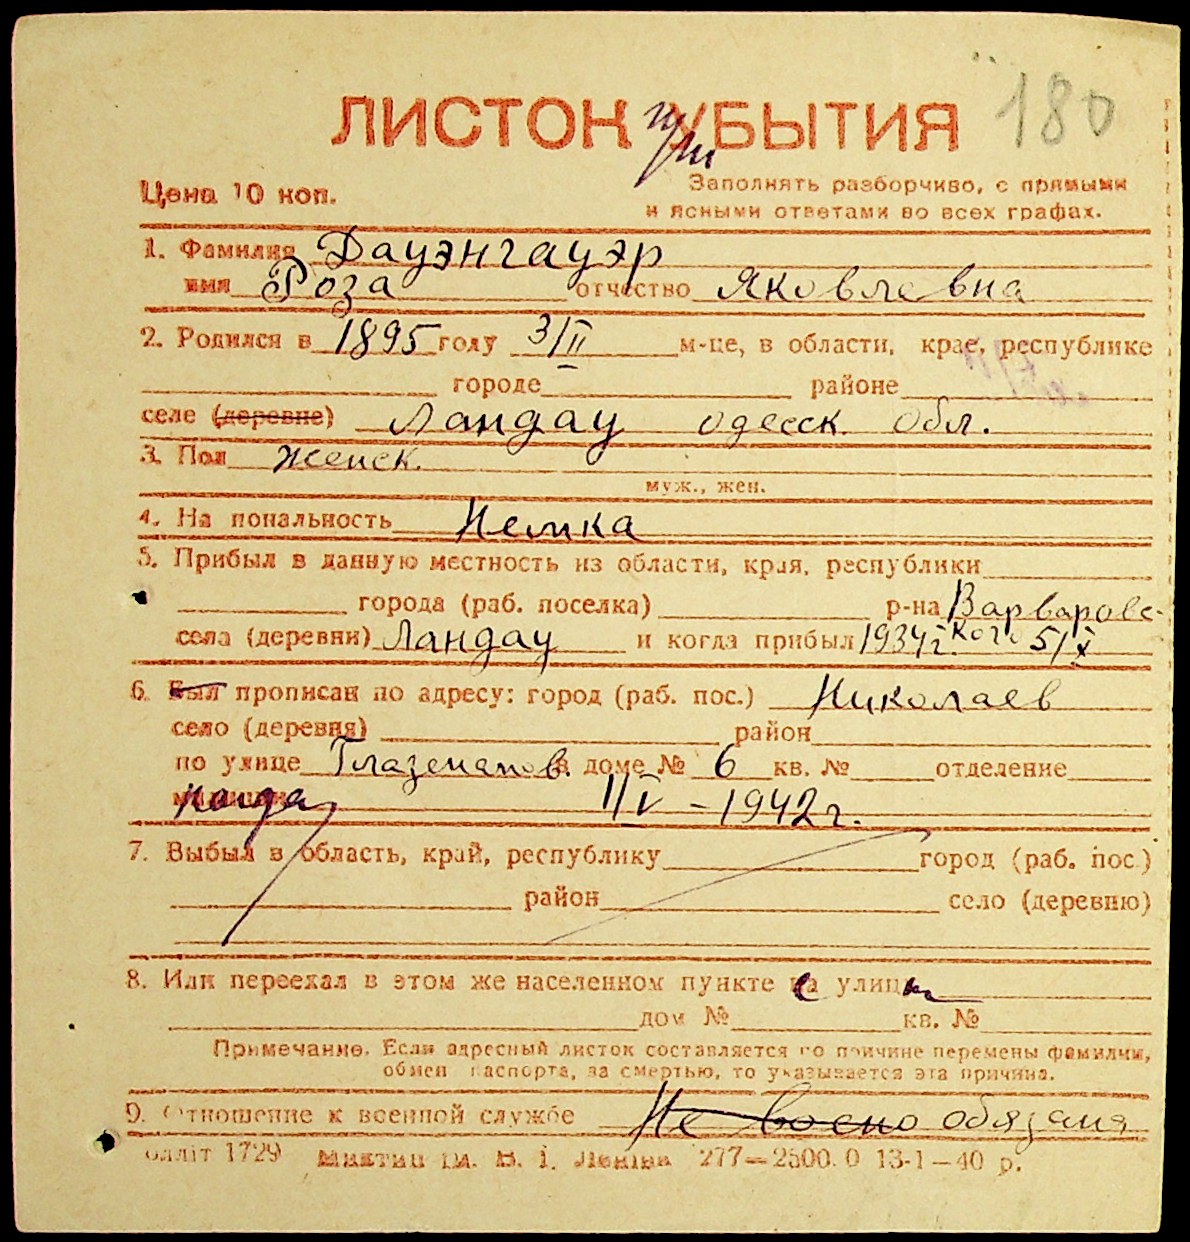 180
ЛИСТОК УБЫТИЯ
при
Цена 10 коп.
Заполнять разборчиво, с прямыми
и ясными ответами во всех графах.
1. Фамилия Дауэнгауэр
имя Роза отчество Яковлевна
2. Родился в 1895 году 3/II м-це, в области, крае, республике
городе районе
селе (деревне) Ландау одесск. обл.
3. Пол женск.
муж., жен.
4. На иональность Немка
5. Прибыл в данную местность из области, края, республики
города (раб. поселка) р-на Варваровс-
кого
села (деревни) Ландау и когда прибыл 1934г. 5/X
6. Был прописан по адресу: город (раб. пос.) Николаев
село (деревня) район
по улице Глазенапов. в доме № 6 кв. № отделение
когда 1/IV - 1942г.
7. Выбыл в область, край, республику город (раб. пос.)
район село (деревню)
8. Или переехал в этом же населенном пункте с улицы
дом № кв. №
Примечание. Если адресный листок составляется по причине перемены фамилии,
обмен паспорта, за смертью, то указывается эта причина.
9. Отношение к военной службе Не военно обязана
олліт 1729 ім. В. І. Леніна 277—2500.0 13-1—40 р.